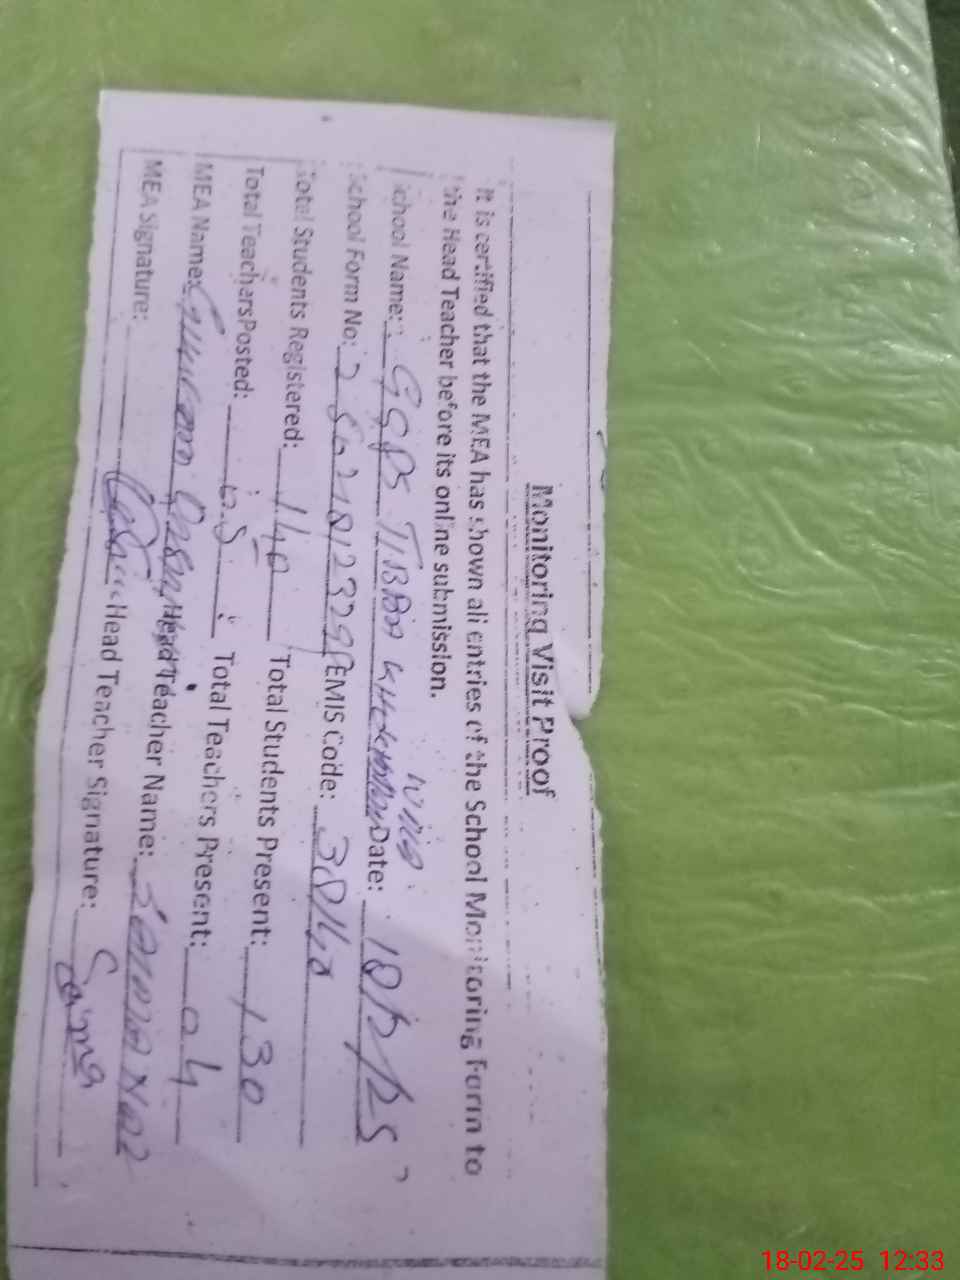 Monitoring Visit Proof
It is certified that the MEA has shown all entries of the School Monitoring Form to
the Head Teacher before its online submission.
School Name: GGPS TIBBA Date: 18/2/25
School Form No: EMIS Code:
Total Students Registered: 140 Total Students Present: 130
Total Teachers Posted: 05 Total Teachers Present: 04
MEA Name: Head Teacher Name: Naz
MEA Signature: Head Teacher Signature:
18-02-25 12:33